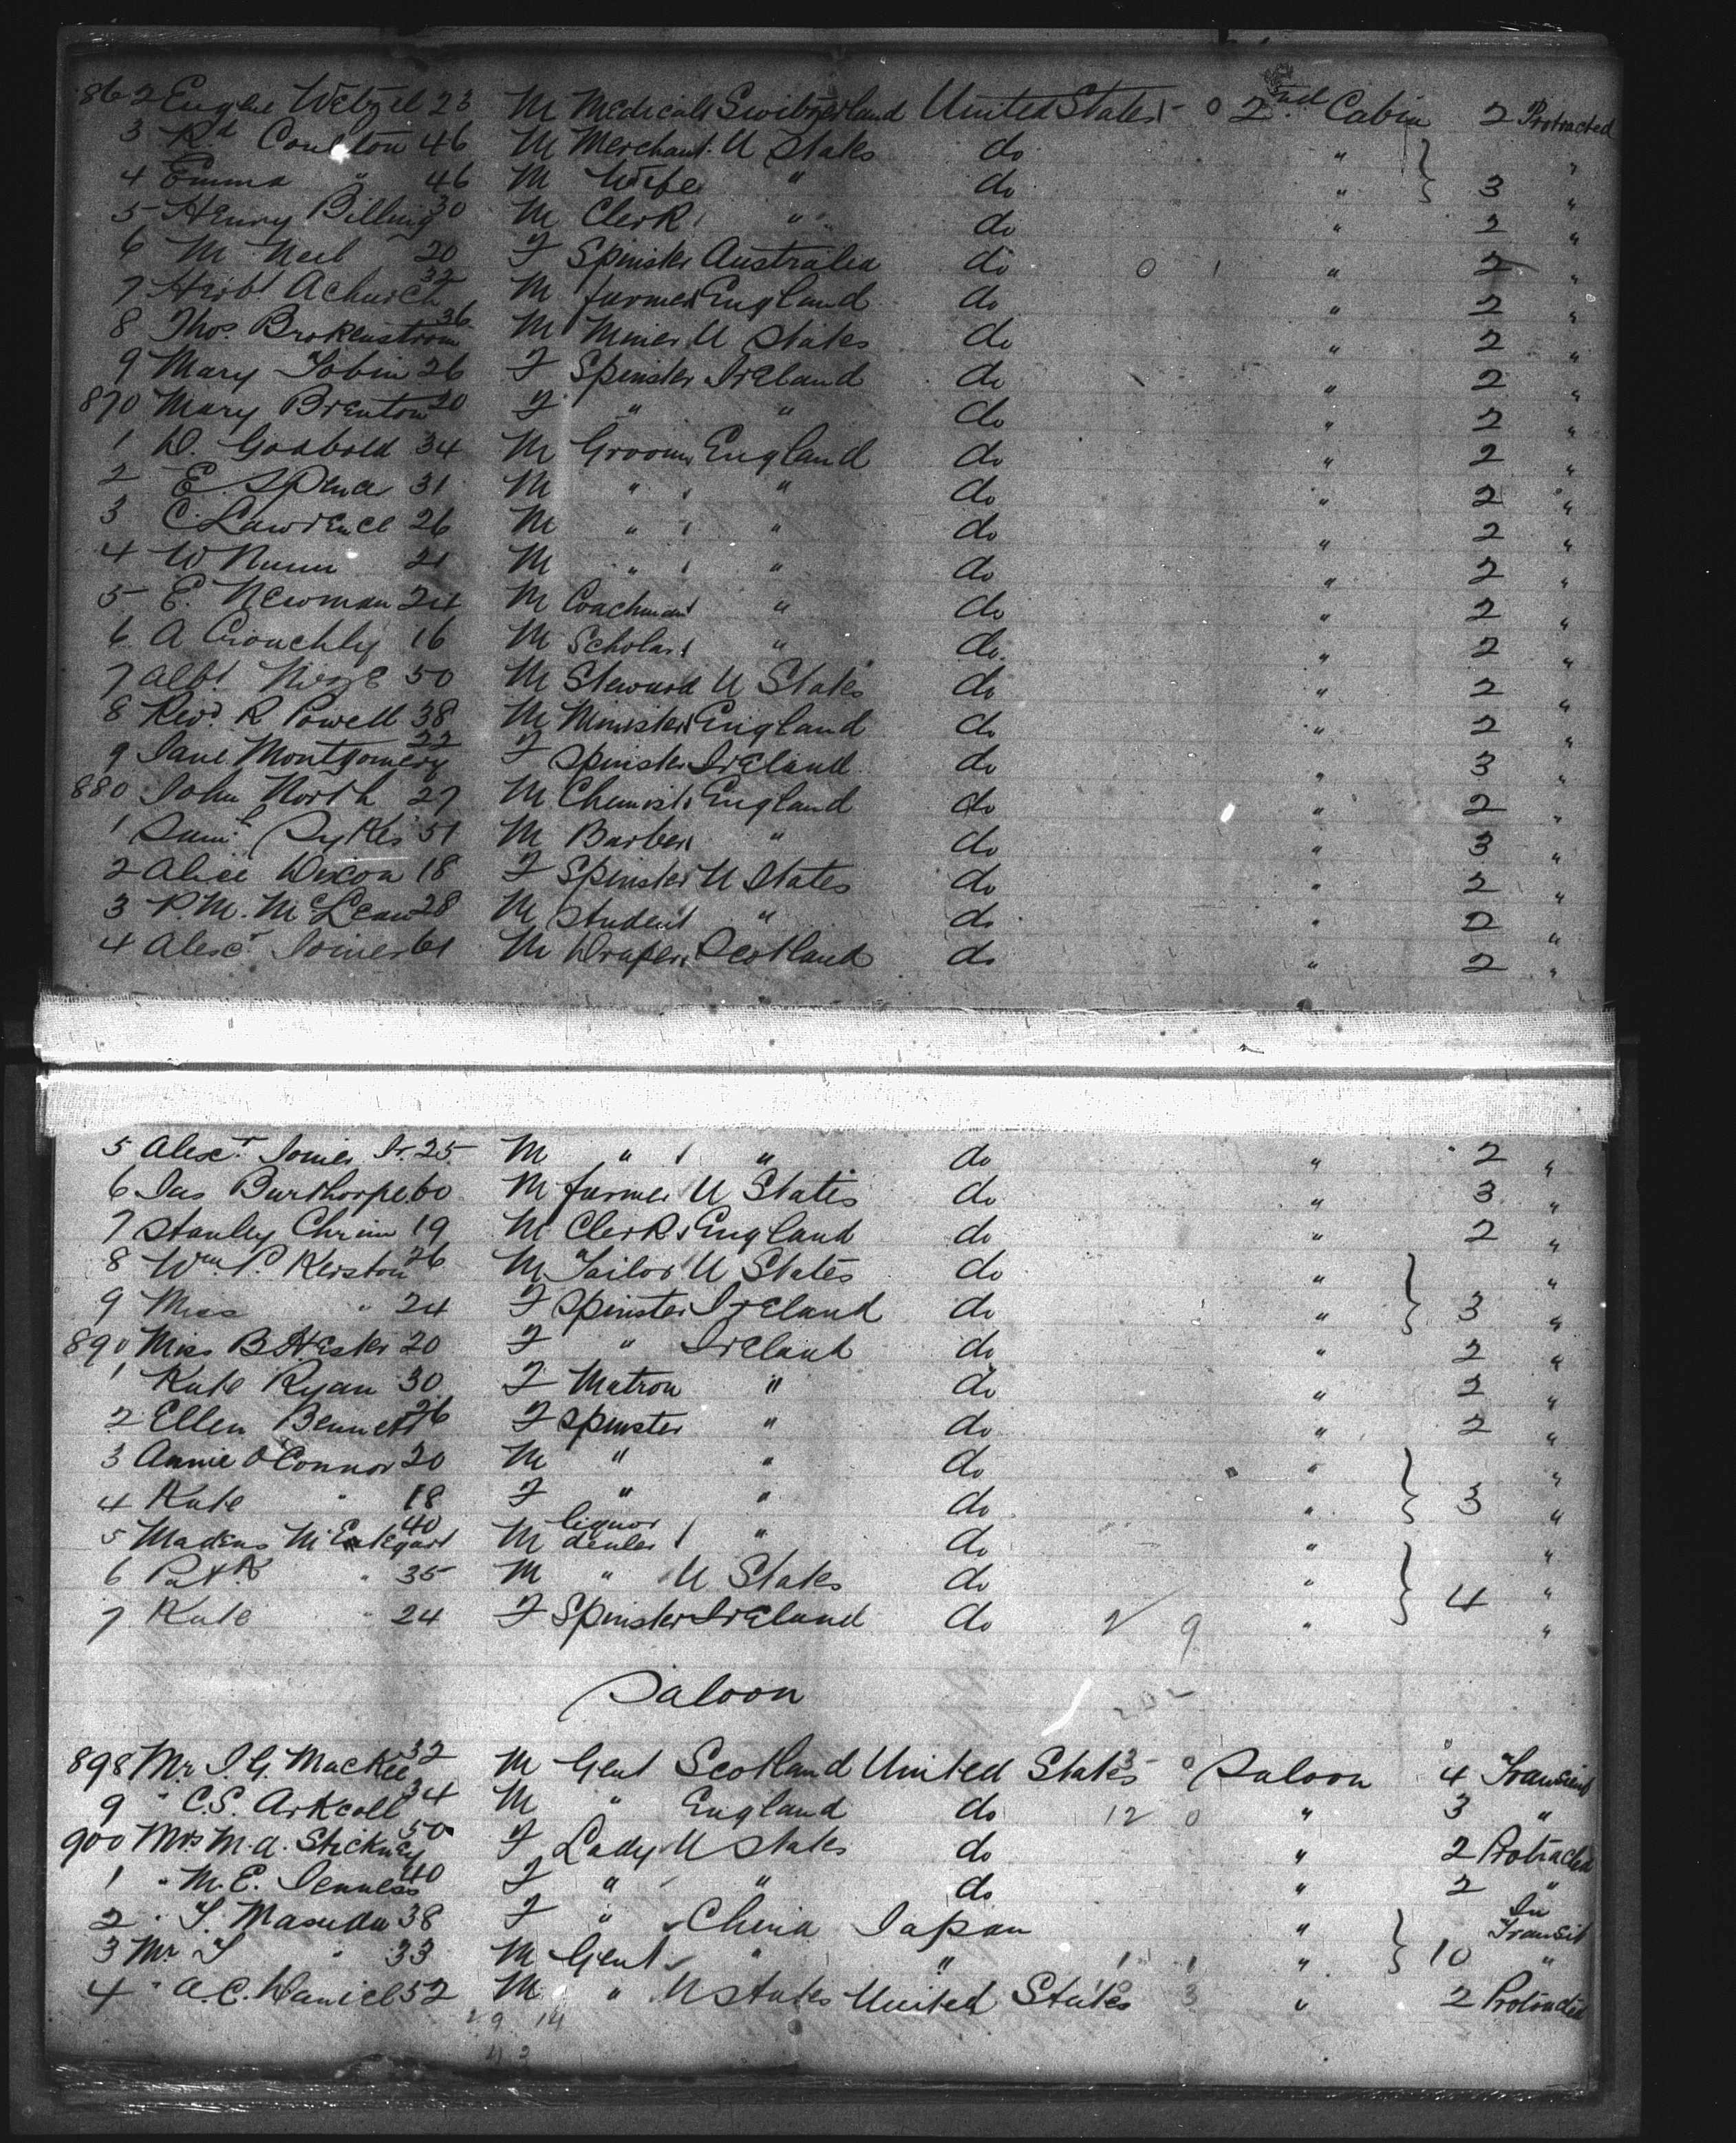 862 Eugene Wetzel 23 M Medical Switzerland United States 1 - 0 2nd Cabin 2 Protracted
3 Rd Coulton 46 M Merchant U States do " "
4 Emma " 46 M Wife " do " 3 "
5 Henry Billing 30 M Clerk " do " 2 "
6 M Neil 20 F Spinster Australia do 0 1 " 2 "
7 Herbt Achurch 32 M farmer England do " 2 "
8 Thos. Brokenstrom 36 M Miner U States do " 2 "
9 Mary Tobin 26 F Spinster Ireland do " 2 "
870 Mary Brenton 20 F " " do " 2 "
1 D. Godbold 34 M Groom England do " 2 "
2 E. Spence 31 M " " do " 2 "
3 C. Lawrence 26 M " " do " 2 "
4 W Nunn 21 M " " do " 2 "
5 E. Newman 24 M Coachman " do " 2 "
6 A Crouchly 16 M Scholar " do " 2 "
7 Albt 50 M Steward U States do " 2 "
8 Revd. R Powell 38 M Minister England do " 2 "
9 Jane Montgomery 22 F Spinster Ireland do " 3 "
880 John North 27 M Chemist England do " 2 "
1 Saml Sykes 51 M Barber " do " 3 "
2 Alice Dixon 18 F Spinster U States do " 2 "
3 P.M. McLean 28 M Student " do " 2 "
4 Alexr Joiner 61 M Draper Scotland do " 2 "
5 Alexr Joiner Jr. 25 M " " do " 2 "
6 Jas Burthorpe 60 M farmer U States do " 3 "
7 Stanley Chrim 19 M Clerk England do " 2 "
8 Wm P. Kerston 26 M Tailor U States do " "
9 Miss " 24 F Spinster Ireland do " 3 "
890 Miss B Hester 20 F " Ireland do " 2 "
1 Kate Ryan 30 F Matron " do " 2 "
2 Ellen Bennett 26 F Spinster " do " 2 "
3 Annie O'Connor 20 M " " do " "
4 Kate " 18 F " " do " 3 "
5 40 M liquor dealer " do " "
6 Patk " 35 M " U States do " "
7 Kate " 24 F Spinster Ireland do 2 9 " 4 "
Saloon
898 Mr J.G. Mackee 32 M Gent Scotland United States 3 - 0 Saloon 4 Transient
9 " C.S. Arkcoll 34 M " England do 12 0 " 3 "
900 Mrs M.A. Stickney 50 F Lady U States do " 2 Protracted
1 " M.E. Jenness 40 F " " do " 2 "
2 " T. Masuda 38 F " China Japan " In Transit
3 Mr T " 33 M Gent " " 1 1 " 10 "
4 " A.C. Daniel 52 M " U States United States 3 " 2 Protracted
29 14